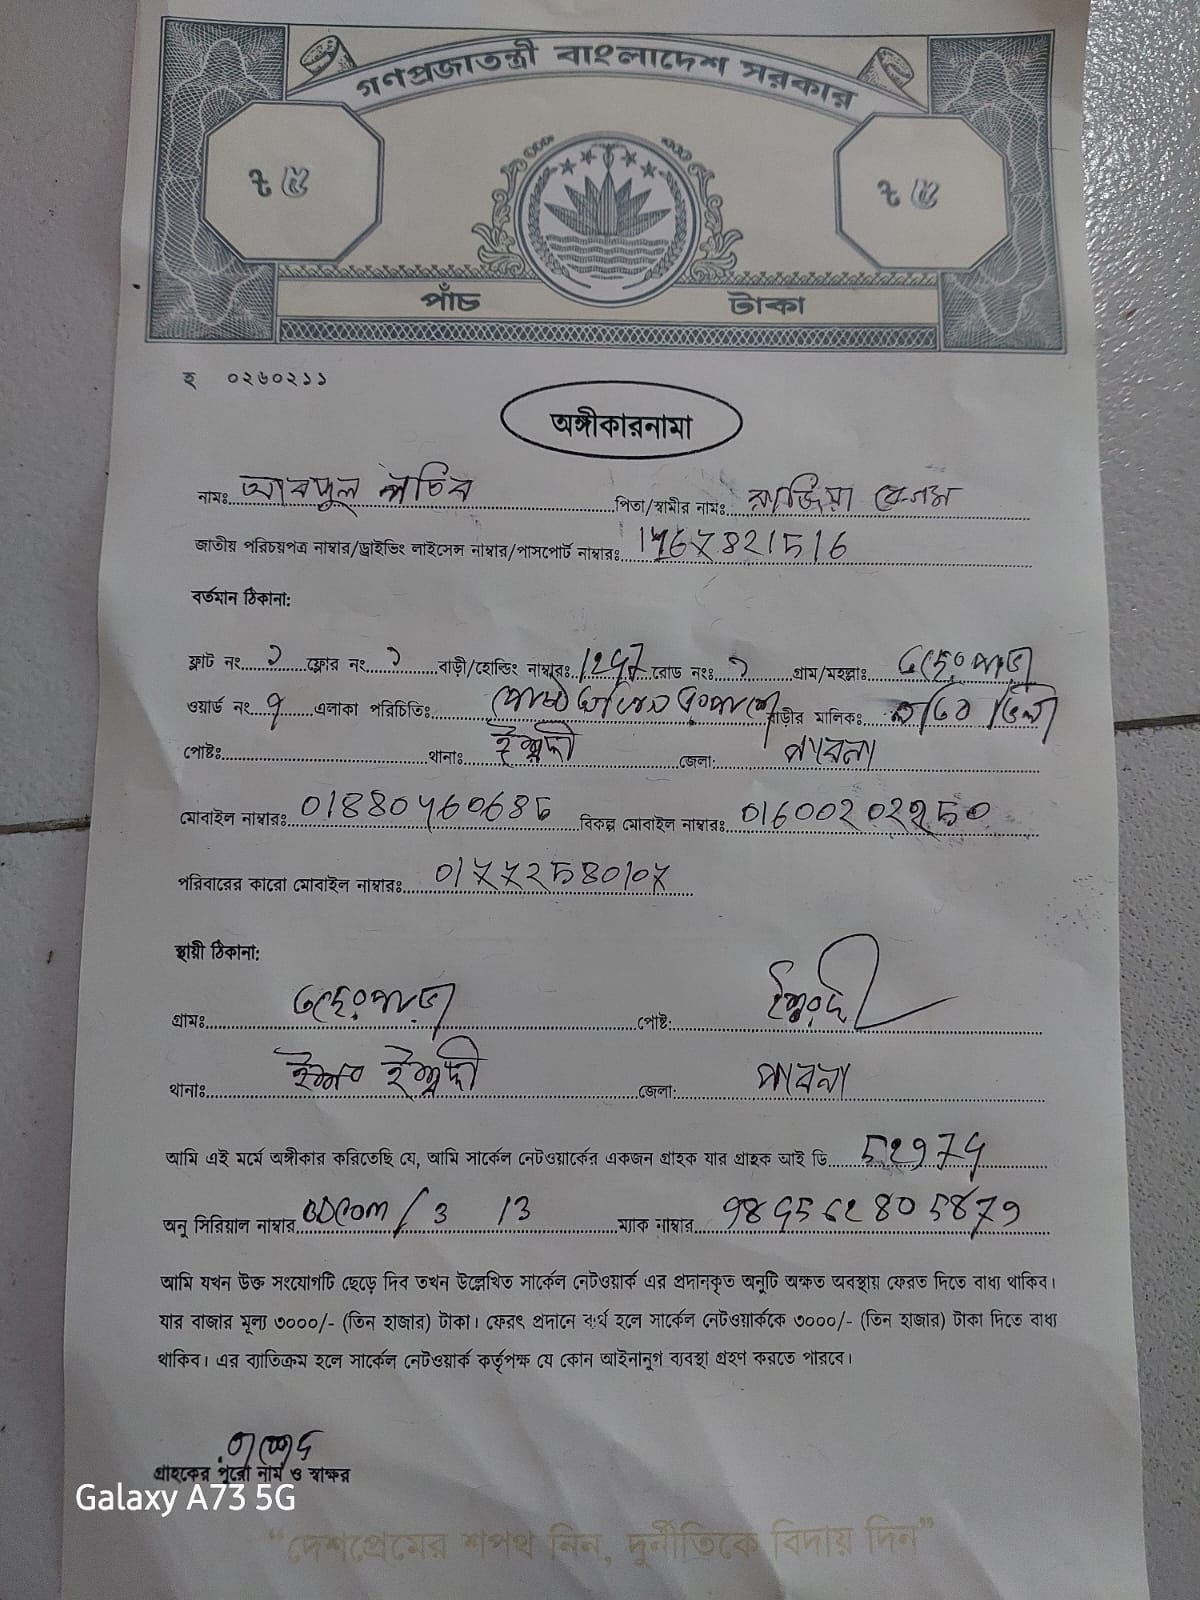 গণপ্রজাতন্ত্রী বাংলাদেশ সরকার
৳ ৫ ৳ ৫
পাঁচ টাকা
হ ০২৬০২১১
অঙ্গীকারনামা
নামঃ আবদুল লতিব পিতা/স্বামীর নামঃ রাজিয়া বেগম
জাতীয় পরিচয়পত্র নাম্বার/ড্রাইভিং লাইসেন্স নাম্বার/পাসপোর্ট নাম্বারঃ
বর্তমান ঠিকানা:
ফ্লাট নং ফ্লোর নং বাড়ী/হোল্ডিং নাম্বারঃ রোড নংঃ গ্রাম/মহল্লাঃ
ওয়ার্ড নং এলাকা পরিচিতিঃ বাড়ীর মালিকঃ
পোষ্টঃ থানাঃ ঈশ্বরদী জেলা: পাবনা
মোবাইল নাম্বারঃ বিকল্প মোবাইল নাম্বারঃ
পরিবারের কারো মোবাইল নাম্বারঃ 01772580107
স্থায়ী ঠিকানা:
গ্রামঃ পোষ্ট: ঈশ্বরদী
থানাঃ ঈশ্বরদী জেলা: পাবনা
আমি এই মর্মে অঙ্গীকার করিতেছি যে, আমি সার্কেল নেটওয়ার্কের একজন গ্রাহক যার গ্রাহক আই ডি
অনু সিরিয়াল নাম্বার BDCOM / 3 13 ম্যাক নাম্বার
আমি যখন উক্ত সংযোগটি ছেড়ে দিব তখন উল্লেখিত সার্কেল নেটওয়ার্ক এর প্রদানকৃত অনুটি অক্ষত অবস্থায় ফেরত দিতে বাধ্য থাকিব।
যার বাজার মূল্য ৩০০০/- (তিন হাজার) টাকা। ফেরৎ প্রদানে ব্যর্থ হলে সার্কেল নেটওয়ার্ককে ৩০০০/- (তিন হাজার) টাকা দিতে বাধ্য
থাকিব। এর ব্যাতিক্রম হলে সার্কেল নেটওয়ার্ক কর্তৃপক্ষ যে কোন আইনানুগ ব্যবস্থা গ্রহণ করতে পারবে।
গ্রাহকের পুরো নাম ও স্বাক্ষর
Galaxy A73 5G
“দেশপ্রেমের শপথ নিন, দুর্নীতিকে বিদায় দিন”